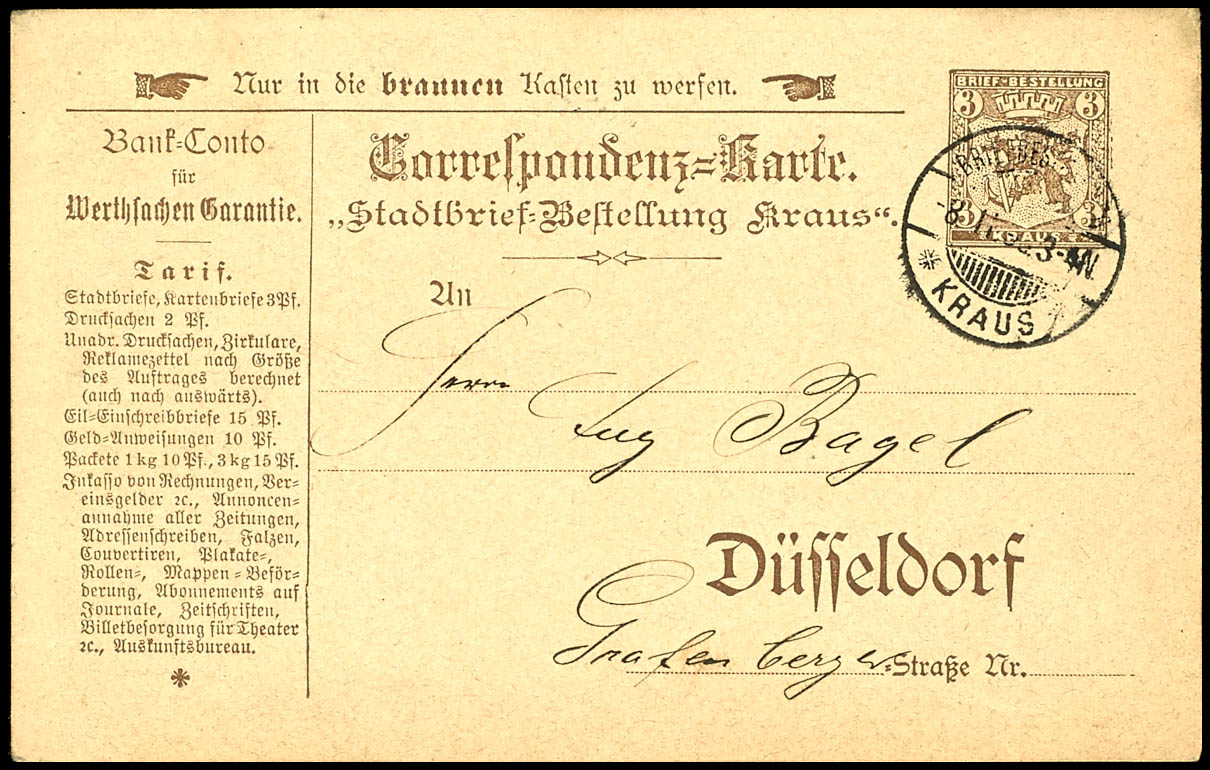 Nur in die braunen Kasten zu werfen.
BRIEF-BESTELLUNG
3 3
3 3
KRAUS
BRIEFBEST.
3-4N.
* KRAUS
Bank-Conto
für
Werthsachen Garantie.
Tarif.
Stadtbriefe, Kartenbriefe 3 Pf.
Drucksachen 2 Pf.
Unadr. Drucksachen, Zirkulare,
Reklamezettel nach Größe
des Auftrages berechnet
(auch nach auswärts).
Eil-Einschreibbriefe 15 Pf.
Geld-Anweisungen 10 Pf.
Packete 1 kg 10 Pf., 3 kg 15 Pf.
Inkasso von Rechnungen, Ver-
einsgelder ꝛc., Annoncen-
annahme aller Zeitungen,
Adressenschreiben, Falzen,
Couvertiren, Plakate-,
Rollen-, Mappen-Beför-
derung, Abonnements auf
Journale, Zeitschriften,
Billetbesorgung für Theater
ꝛc., Auskunftsbureau.
Correspondenz-Karte.
„Stadtbrief-Bestellung Kraus“.
An
Herrn
Aug Bagel
Düsseldorf
Grafenberger-Straße Nr.